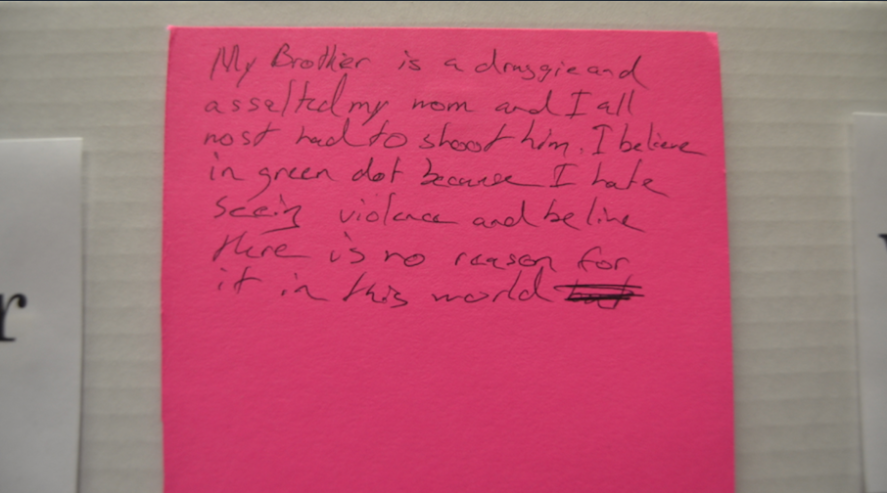 My Brother is a druggie and
asselted my mom and I all
most had to shoot him. I believe
in green dot because I hate
seeing violence and beline
there is no reason for
it in this world
r